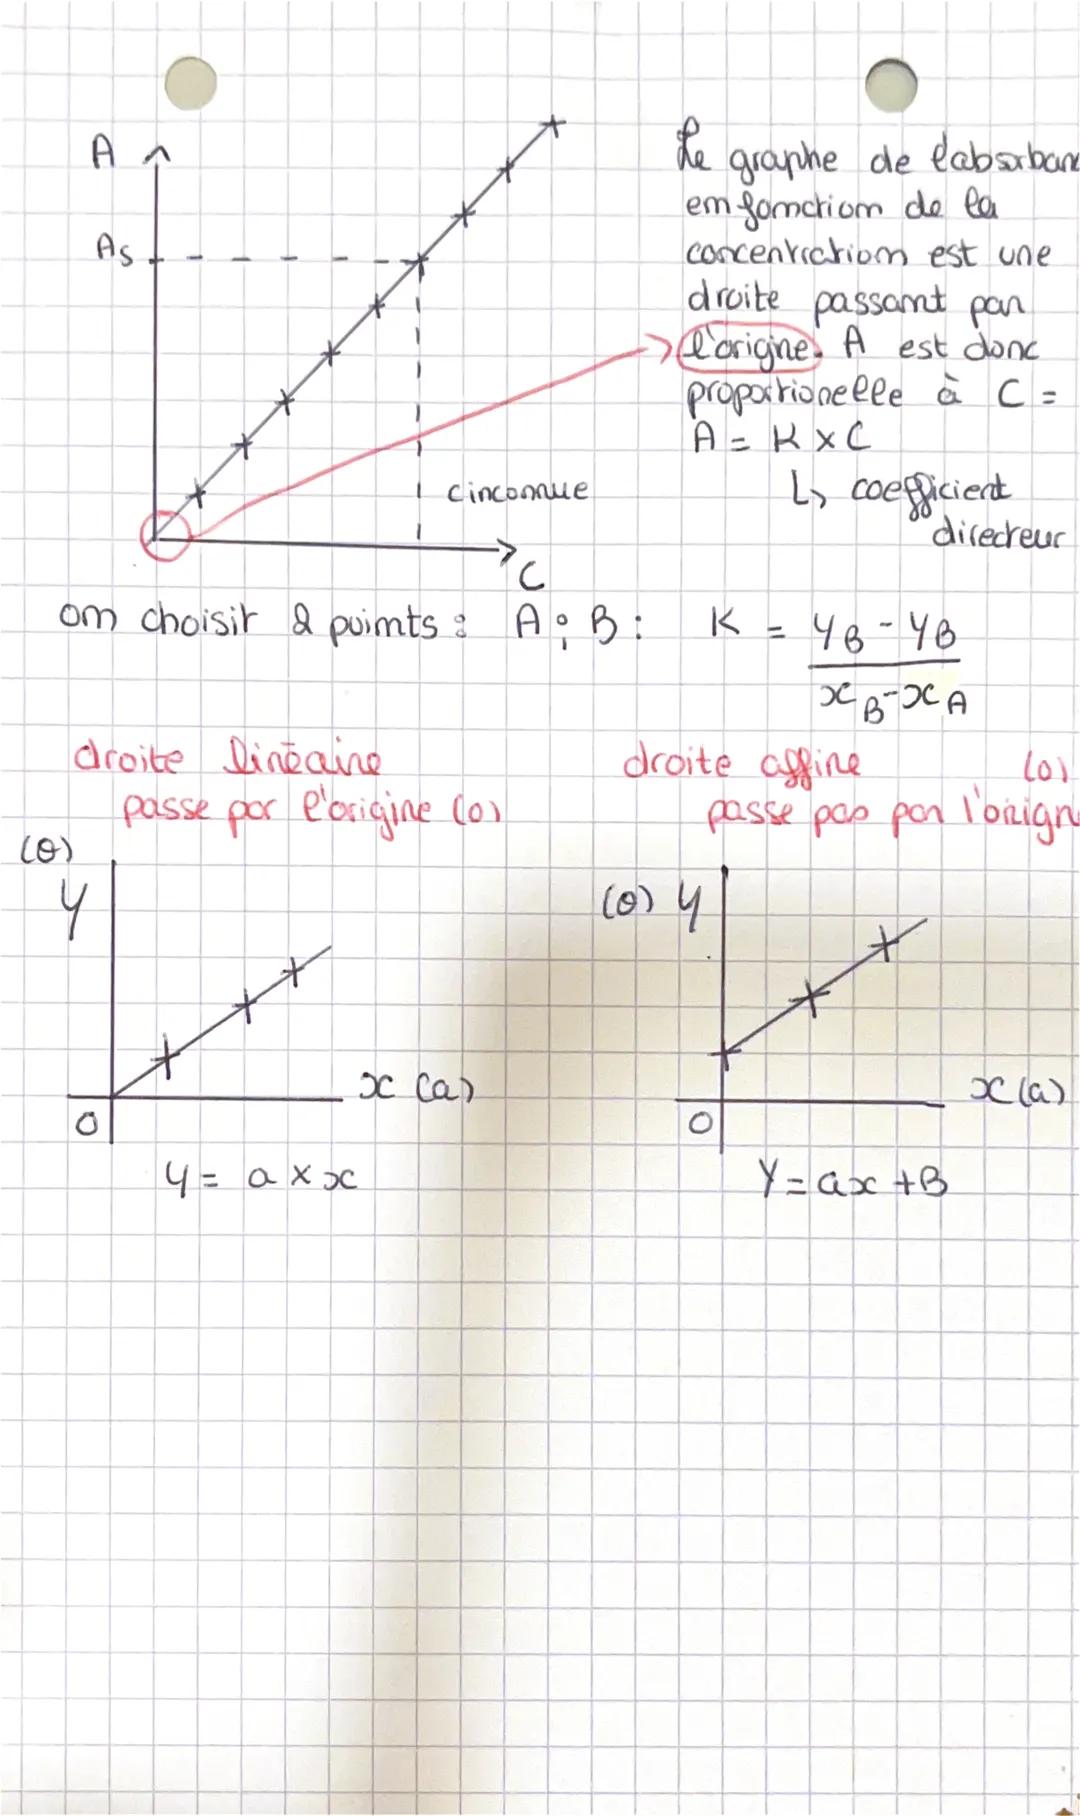 A
As
cinconnue
C
Le graphe de l'absorban
en fonction de la
concentration est une
droite passant par
l'origine. A est donc
proportionelle à C =
A = K x C
↳ coefficient
directeur
on choisit 2 points : A ; B : K = yB - yB
xB - xA
droite linéaire
passe par l'origine (0)
droite affine (0)
passe pas par l'origin
(0)
y
x (a)
0
y = a x x
(0) y
x (a)
0
Y = ax + B